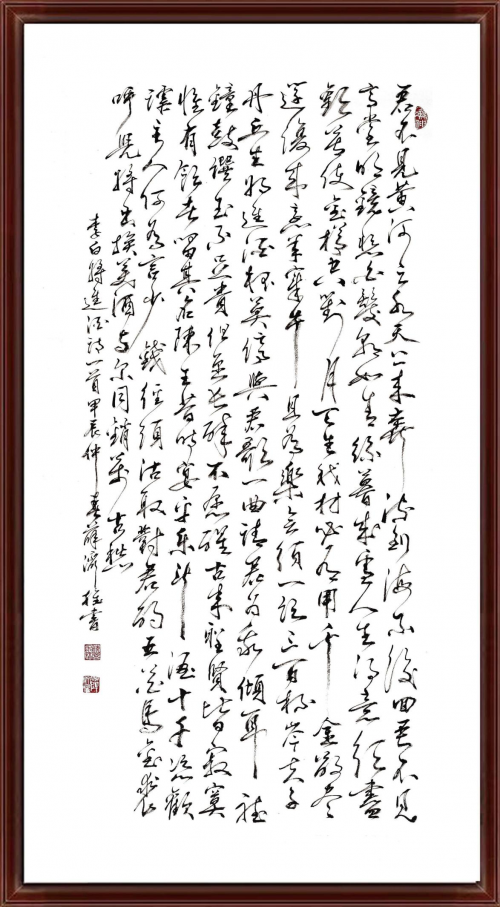 君不見黃河之水天上來奔流到海不復回君不見
高堂明鏡悲白髮朝如青絲暮成雪人生得意須盡
歡莫使金樽空對月天生我材必有用千金散盡
還復來烹羊宰牛且為樂會須一飲三百杯岑夫子
丹丘生將進酒杯莫停與君歌一曲請君為我傾耳聽
鐘鼓饌玉不足貴但愿長醉不愿醒古來聖賢皆寂寞
惟有飲者留其名陳王昔時宴平樂斗酒十千恣歡
謔主人何為言少錢徑須沽取對君酌五花馬金裘
呼兒將出換美酒與爾同銷萬古愁
李白將進酒詩一首甲辰仲春薛濟書